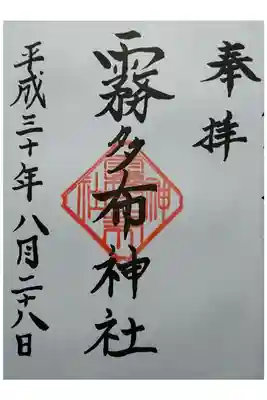 奉拝
霧多布神社
平成三十年八月二十八日